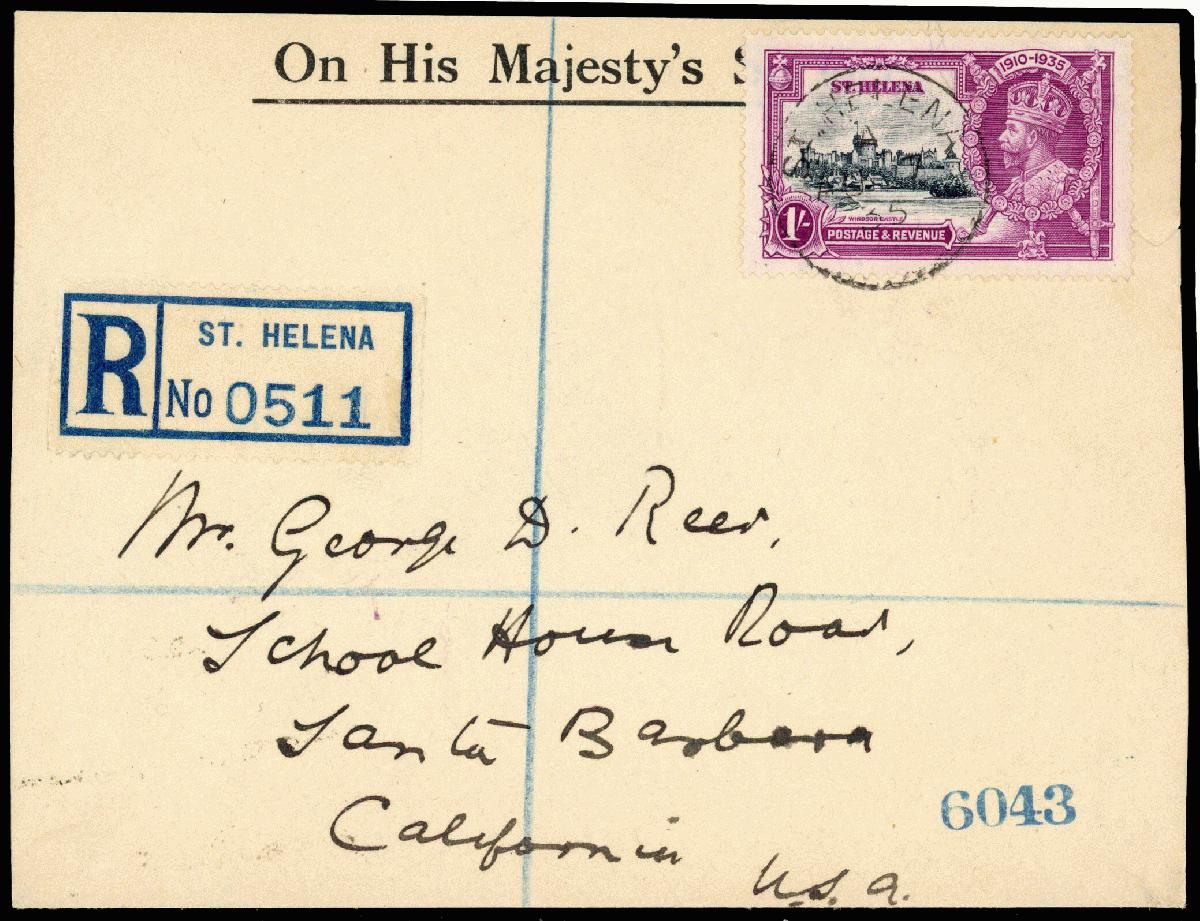 On His Majesty's S
1910-1935
ST. HELENA
WINDSOR CASTLE
1/-
POSTAGE & REVENUE
ST. HELENA
35
R
ST. HELENA
No 0511
Mr. George D. Reed,
School House Road,
Santa Barbara
California
U.S.A.
6043